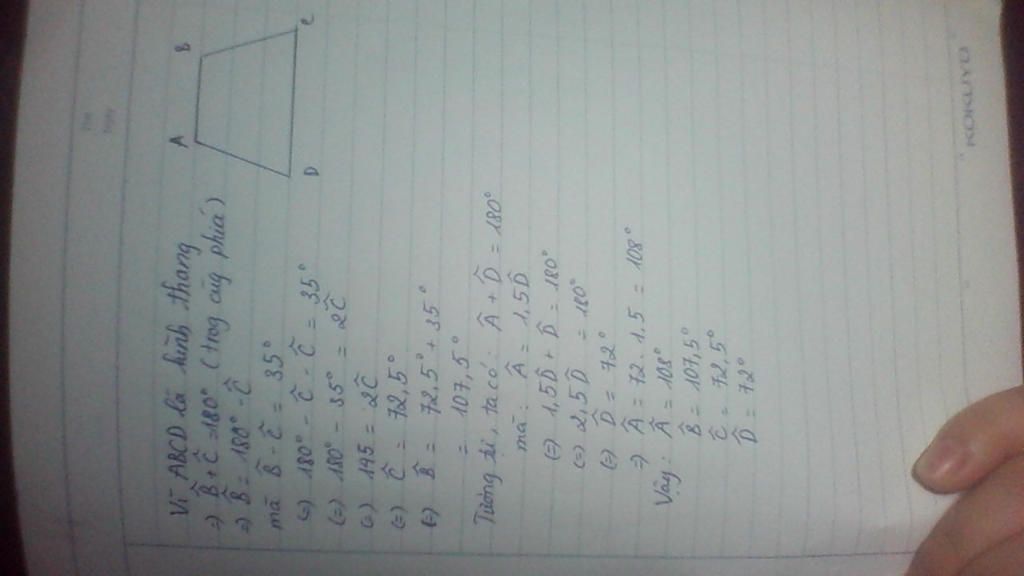 Vì ABCD là hình thang
=) B̂ + Ĉ = 180° (trog cùg phía)
=) B̂ = 180° - Ĉ
mà B̂ - Ĉ = 35°
(=) 180° - Ĉ - Ĉ = 35°
(=) 180° - 35° = 2Ĉ
(=) 145 = 2Ĉ
(=) Ĉ = 72,5°
(=) B̂ = 72,5° + 35°
= 107,5°
Tương tự, ta có: Â + D̂ = 180°
mà: Â = 1,5D̂
(=) 1,5D̂ + D̂ = 180°
(=) 2,5D̂ = 180°
(=) D̂ = 72°
=) Â = 72. 1,5 = 108°
Vậy: Â = 108°
B̂ = 107,5°
Ĉ = 72,5°
D̂ = 72°
A B
D C
KOKUYO